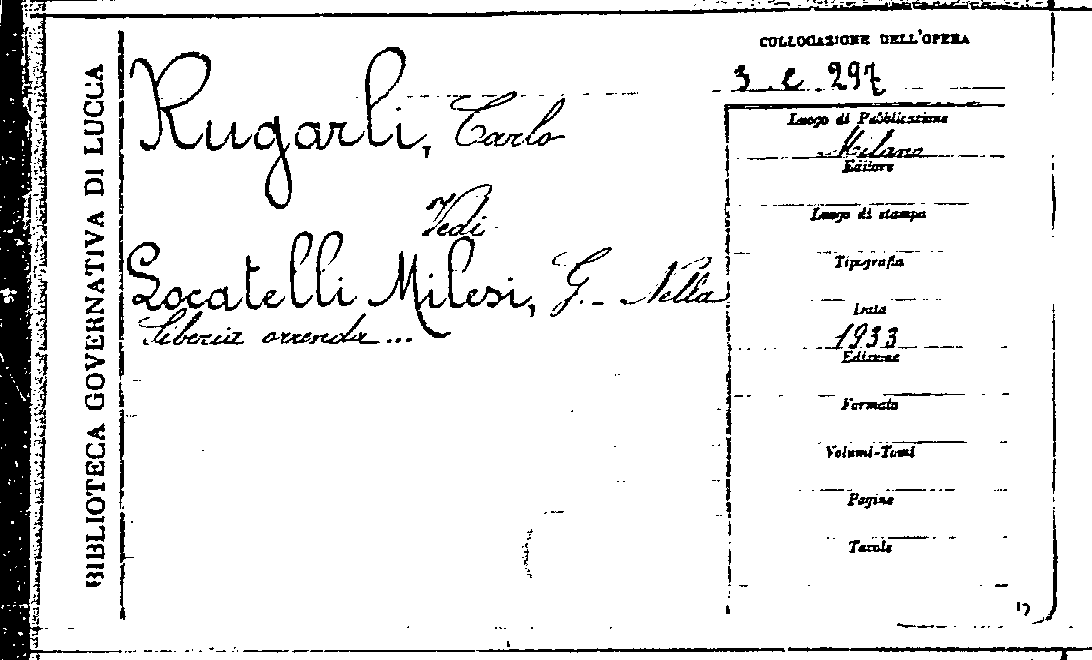 BIBLIOTECA GOVERNATIVA DI LUCCA
Rugarli, Carlo
Vedi
Locatelli Milesi, G. - Nella
Siberia orrenda ...
COLLOCAZIONE DELL'OPERA
3. e. 297
Luogo di Pubblicazione
Milano
Editore
Luogo di stampa
Tipografia
Data
1933
Edizione
Formato
Volumi-Tomi
Pagine
Tavole